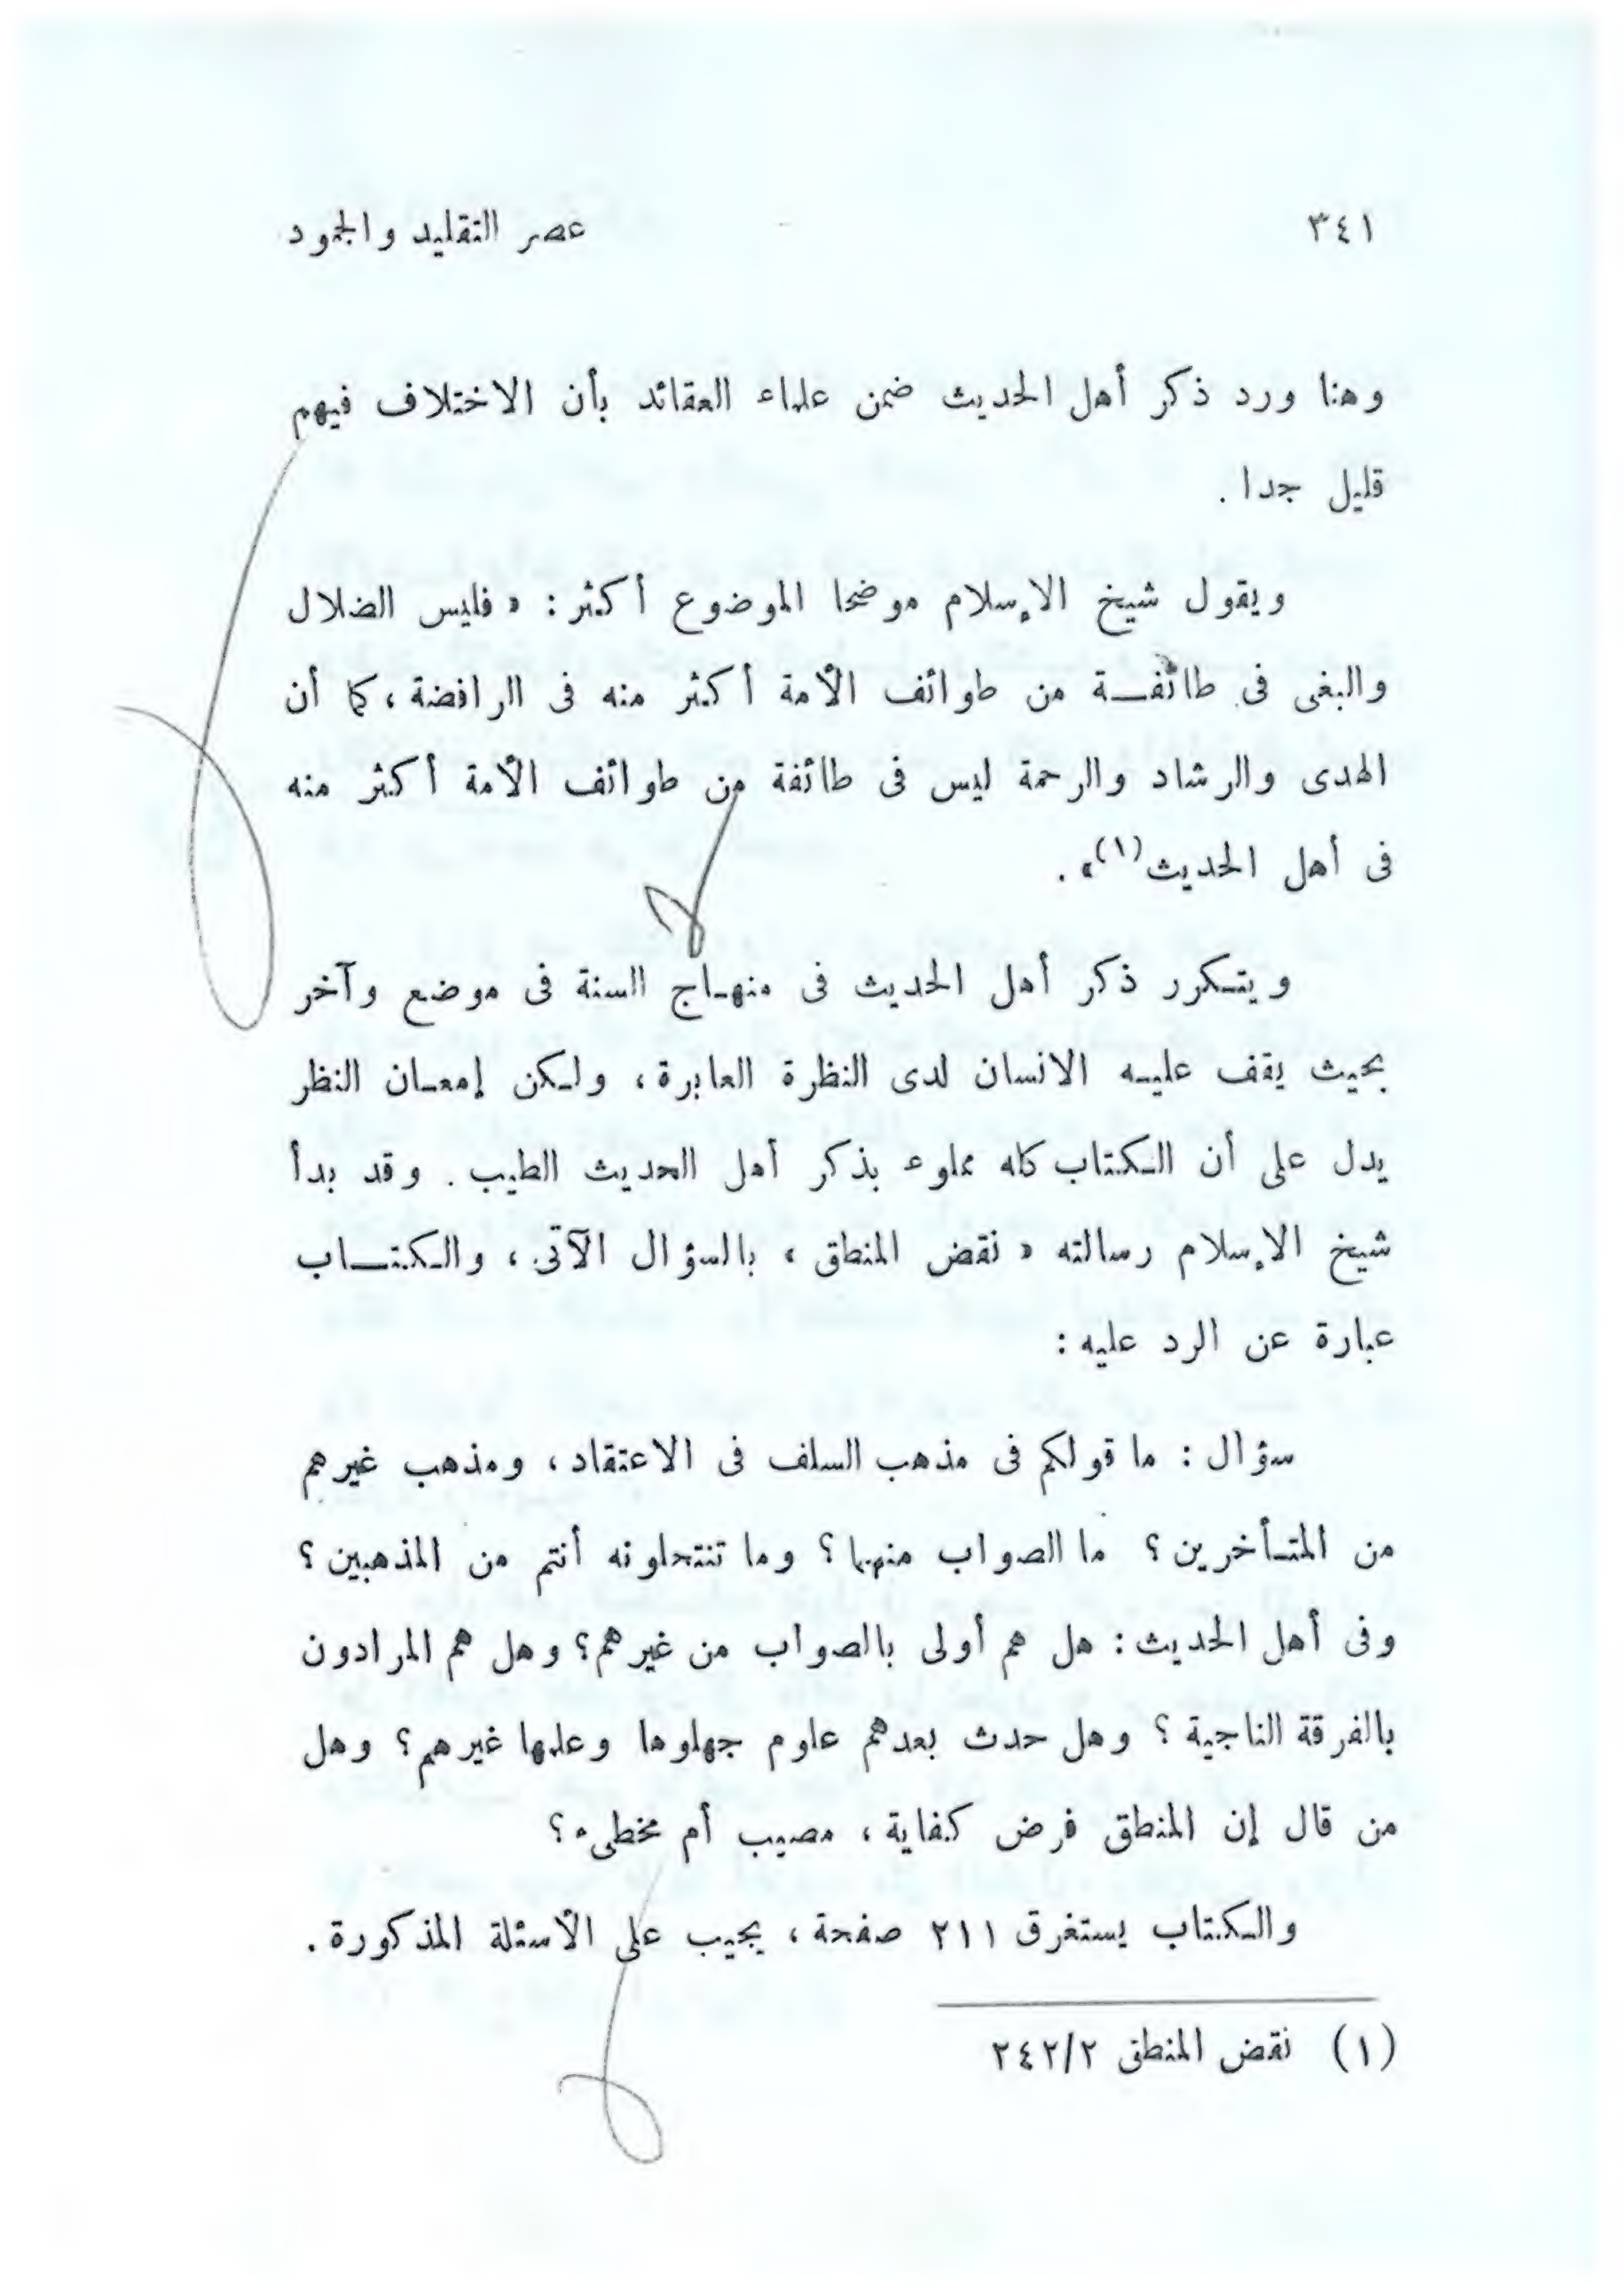 ٣٤١
عصر التقليد والجمود
وهنا ورد ذكر أهل الحديث ضمن علماء العقائد بأن الاختلاف فيهم
قليل جدا .
ويقول شيخ الإسلام موضحا الموضوع أكثر : « فليس الضلال
والبغى فى طائفة من طوائف الأمة أكثر منه فى الرافضة ، كما أن
الهدى والرشاد والرحمة ليس فى طائفة من طوائف الأمة أكثر منه
فى أهل الحديث(١)» .
ويتكرر ذكر أهل الحديث فى منهاج السنة فى موضع وآخر
بحيث يقف عليه الانسان لدى النظرة العابرة ، ولكن إمعان النظر
يدل على أن الكتاب كله مملوء بذكر أهل الحديث الطيب . وقد بدأ
شيخ الإسلام رسالته « نقض المنطق » بالسؤال الآتى ، والكتاب
عبارة عن الرد عليه :
سؤال : ما قولكم فى مذهب السلف فى الاعتقاد ، ومذهب غيرهم
من المتأخرين ؟ ما الصواب منهما ؟ وما تنتحلونه أنتم من المذهبين ؟
وفى أهل الحديث : هل هم أولى بالصواب من غيرهم ؟ وهل هم المرادون
بالفرقة الناجية ؟ وهل حدث بعدهم علوم جهلوها وعلمها غيرهم ؟ وهل
من قال إن المنطق فرض كفاية ، مصيب أم مخطىء ؟
والكتاب يستغرق ٢١١ صفحة ، يجيب على الأسئلة المذكورة .
(١) نقض المنطق ٢٤٢/٢